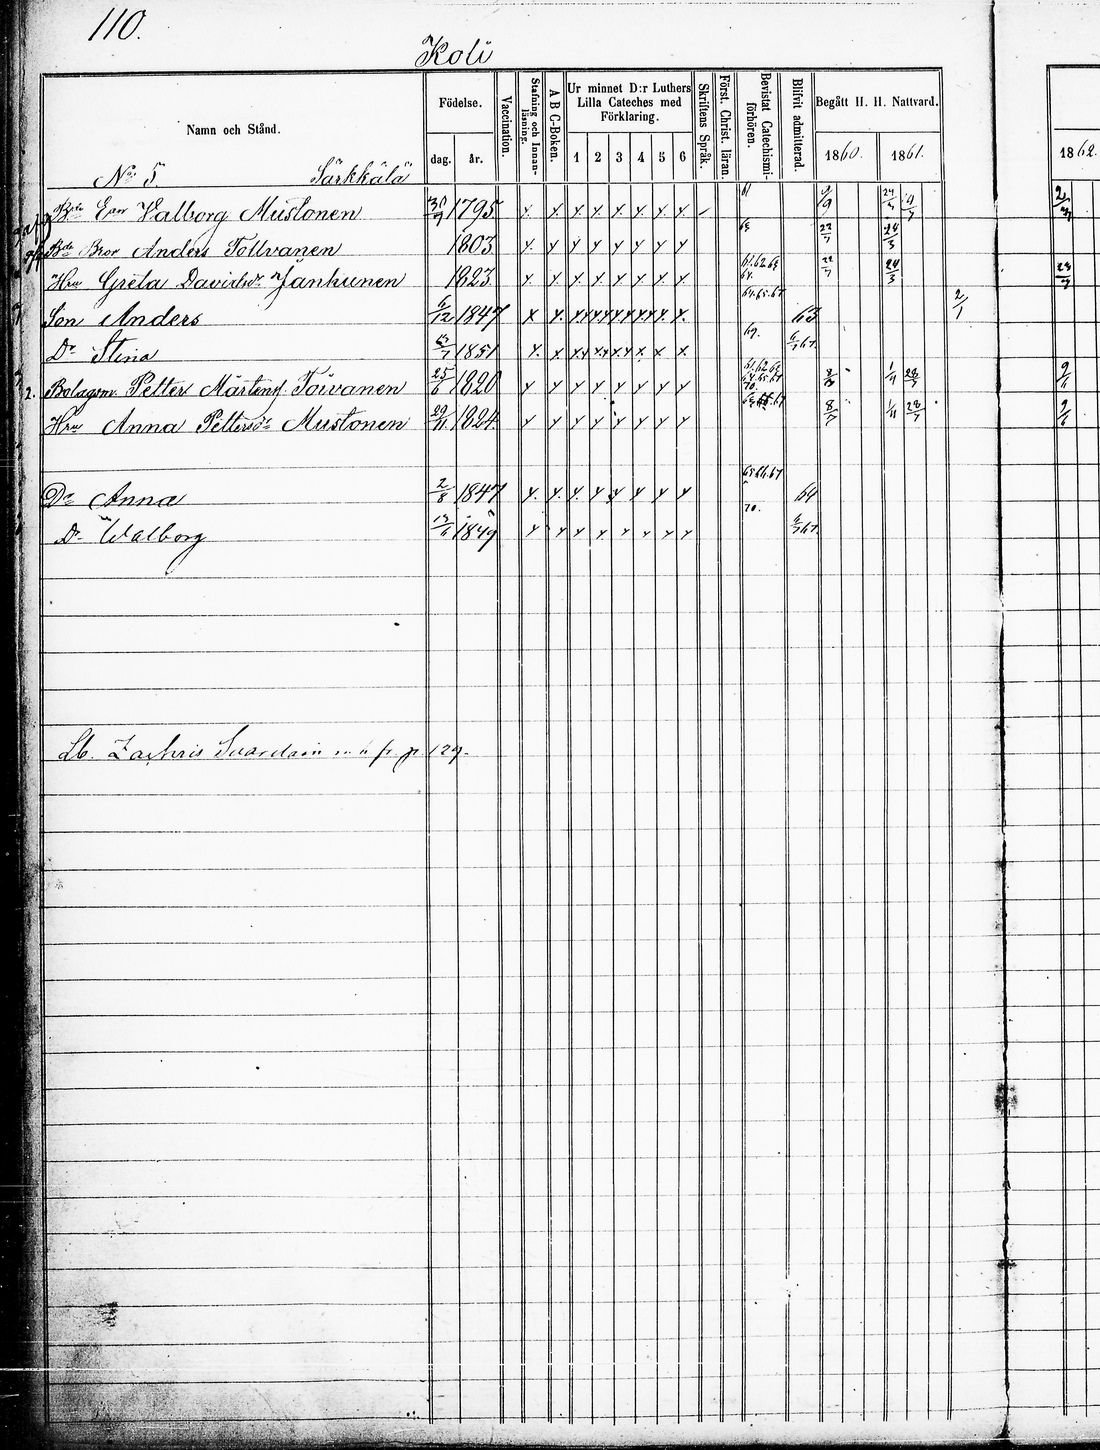 110.
Koli
Namn och Stånd.
Födelse.
dag. år.
Vaccination.
Stafning och Innanläsning.
A B C-Boken.
Ur minnet D:r Luthers Lilla Cateches med Förklaring.
1 2 3 4 5 6
Skriftens Språk.
Först. Christ. läran.
Bevistat Catechismiförhören.
Blifvit admitterad.
Begått H. H. Nattvard.
1860. 1861.
1862.
No 5. Särkkälä
Valborg Mustonen 1795 61 9/9
Bror Anders Tolvanen 1803 63 22/7 24/3
Hru Greta Davidsdr Jänhunen 1823 61.62.63 64. 22/7 24/3 23/7
Son Anders 6/12 1847 64.65.67 63 2/7
Dr Stina 1851 69. 67.
2. Bolagsm Petter Mårtens Toivanen 25/6 1820 61.62.63 64.65.67 70. 8/7 1/11 28/7 9/11
Hru Anna Pettersdr Mustonen 29/11 1824 8/7 1/11 28/7
Dr Anna 2/8 1847 65.66.67 64
Dr Walborg 1849 70. 67.
Lb. Zachris p. 129.